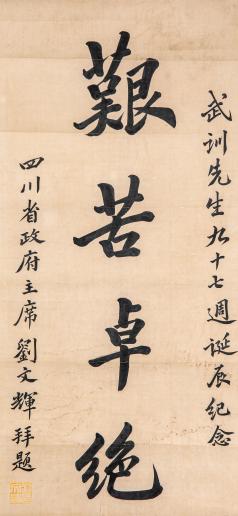 武训先生九十七週诞辰纪念
艱苦卓绝
四川省政府主席劉文輝拜题